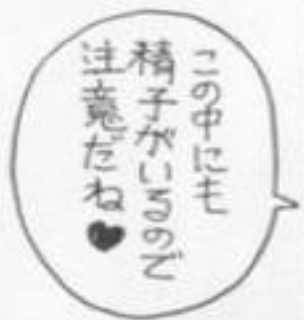 この中にも
精子がいるので
注意だね♥